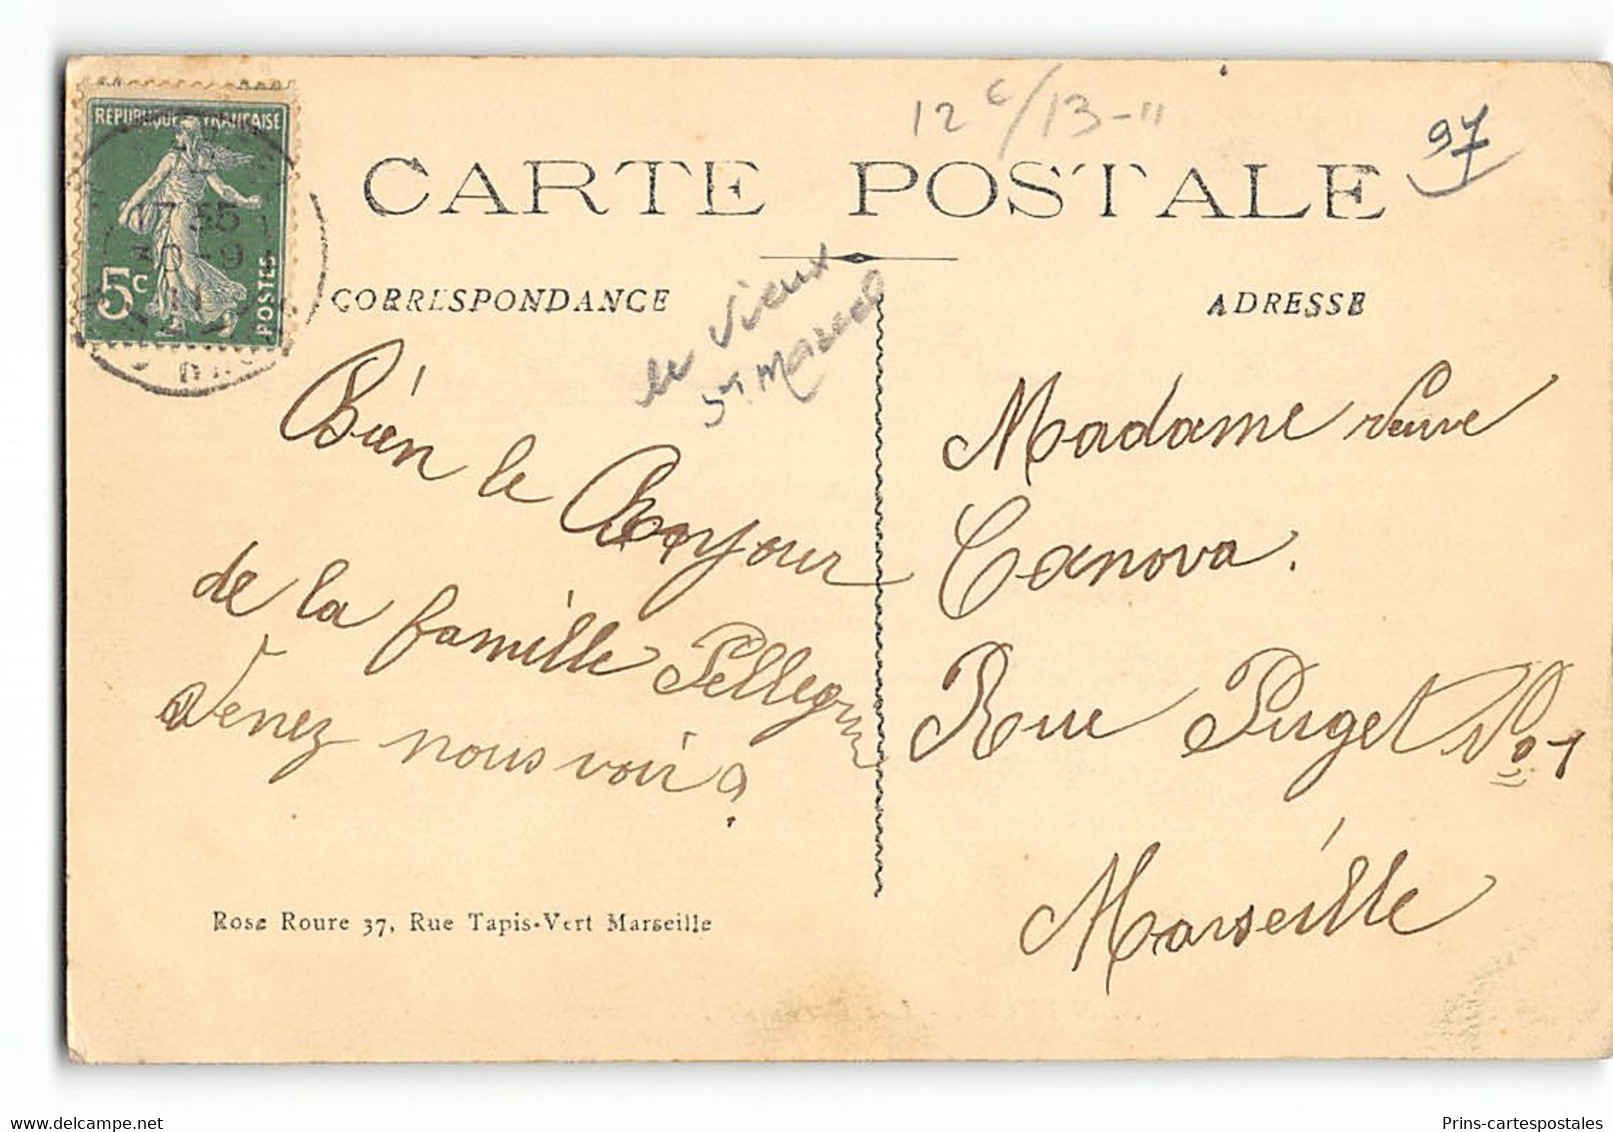 12 c/13-11
97
REPUBLIQUE FRANÇAISE
17 35
30-9
11
5c
POSTES
CARTE POSTALE
CORRESPONDANCE
ADRESSE
le vieux
St. Marcel
Bién le Bonjour
de la famille Pellegrin
Venez nous voir ?
Madame Veuve
Canova.
Rue Puget No 1
Marseille
Rose Roure 37, Rue Tapis-Vert Marseille
Prins-cartespostales